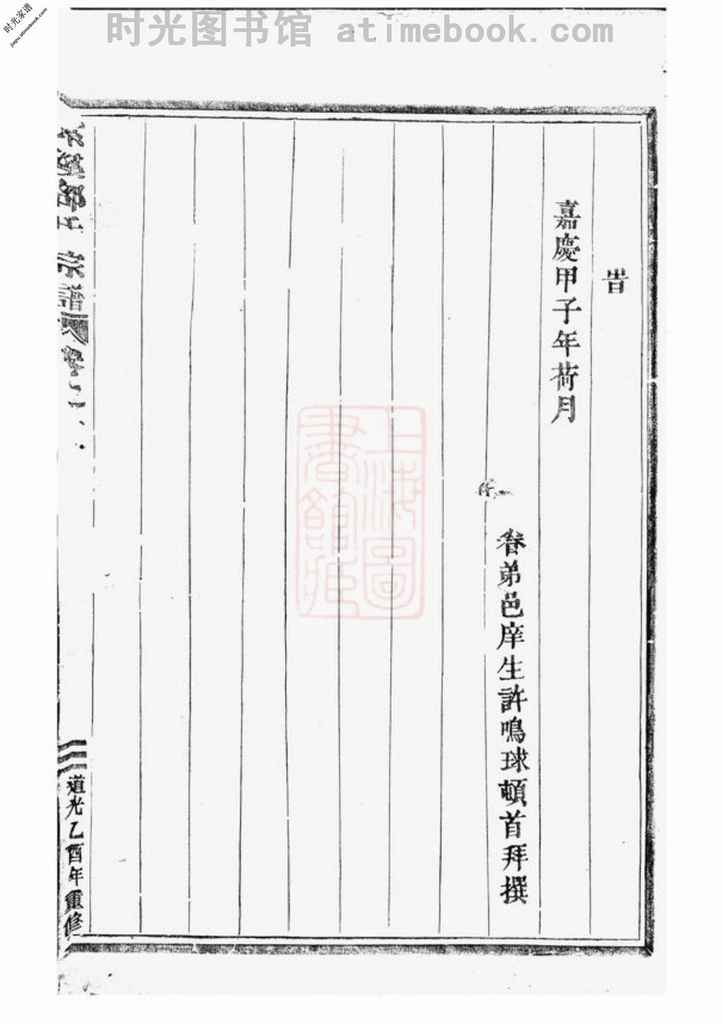 时光图书馆 atimebook.com
时光家谱
jiapu.atimebook.com
旹
嘉慶甲子年荷月
眷弟邑庠生許鳴球頓首拜撰
宗譜
道光乙酉年重修
上海圖書館藏